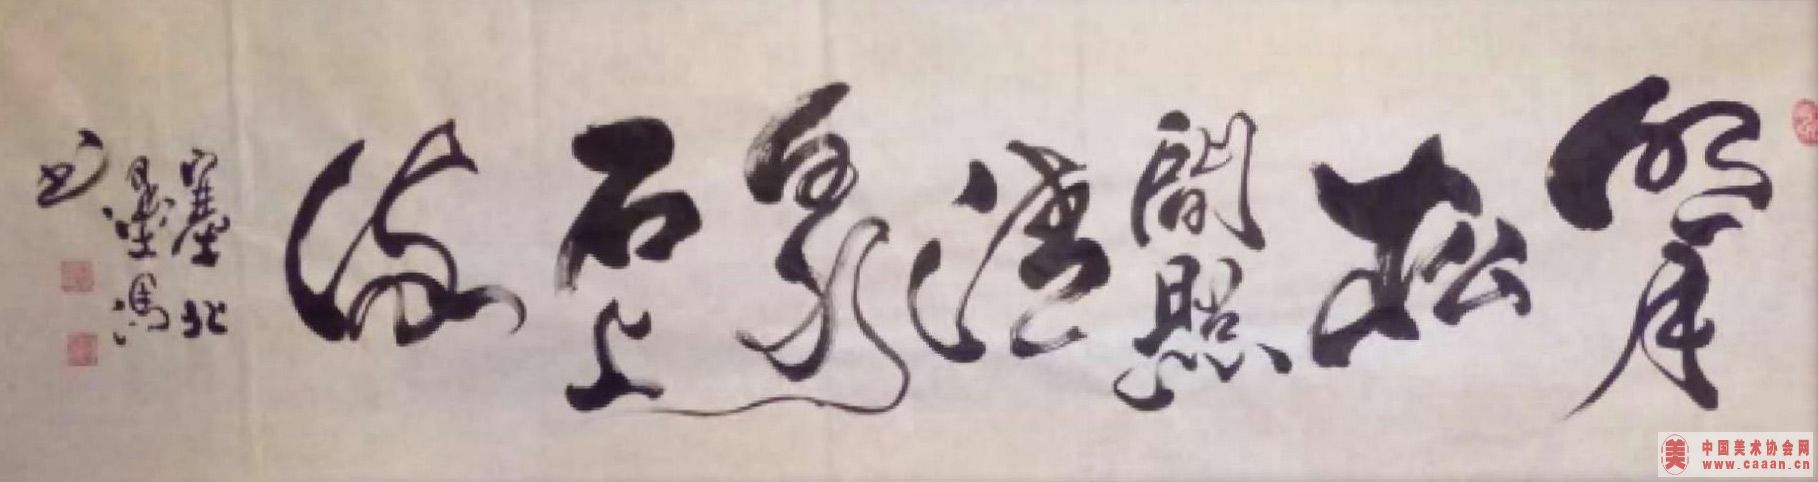 明月
松
間照
清
泉
石上
流
塞北
墨馮
书
中国美术协会网
www.caaan.cn